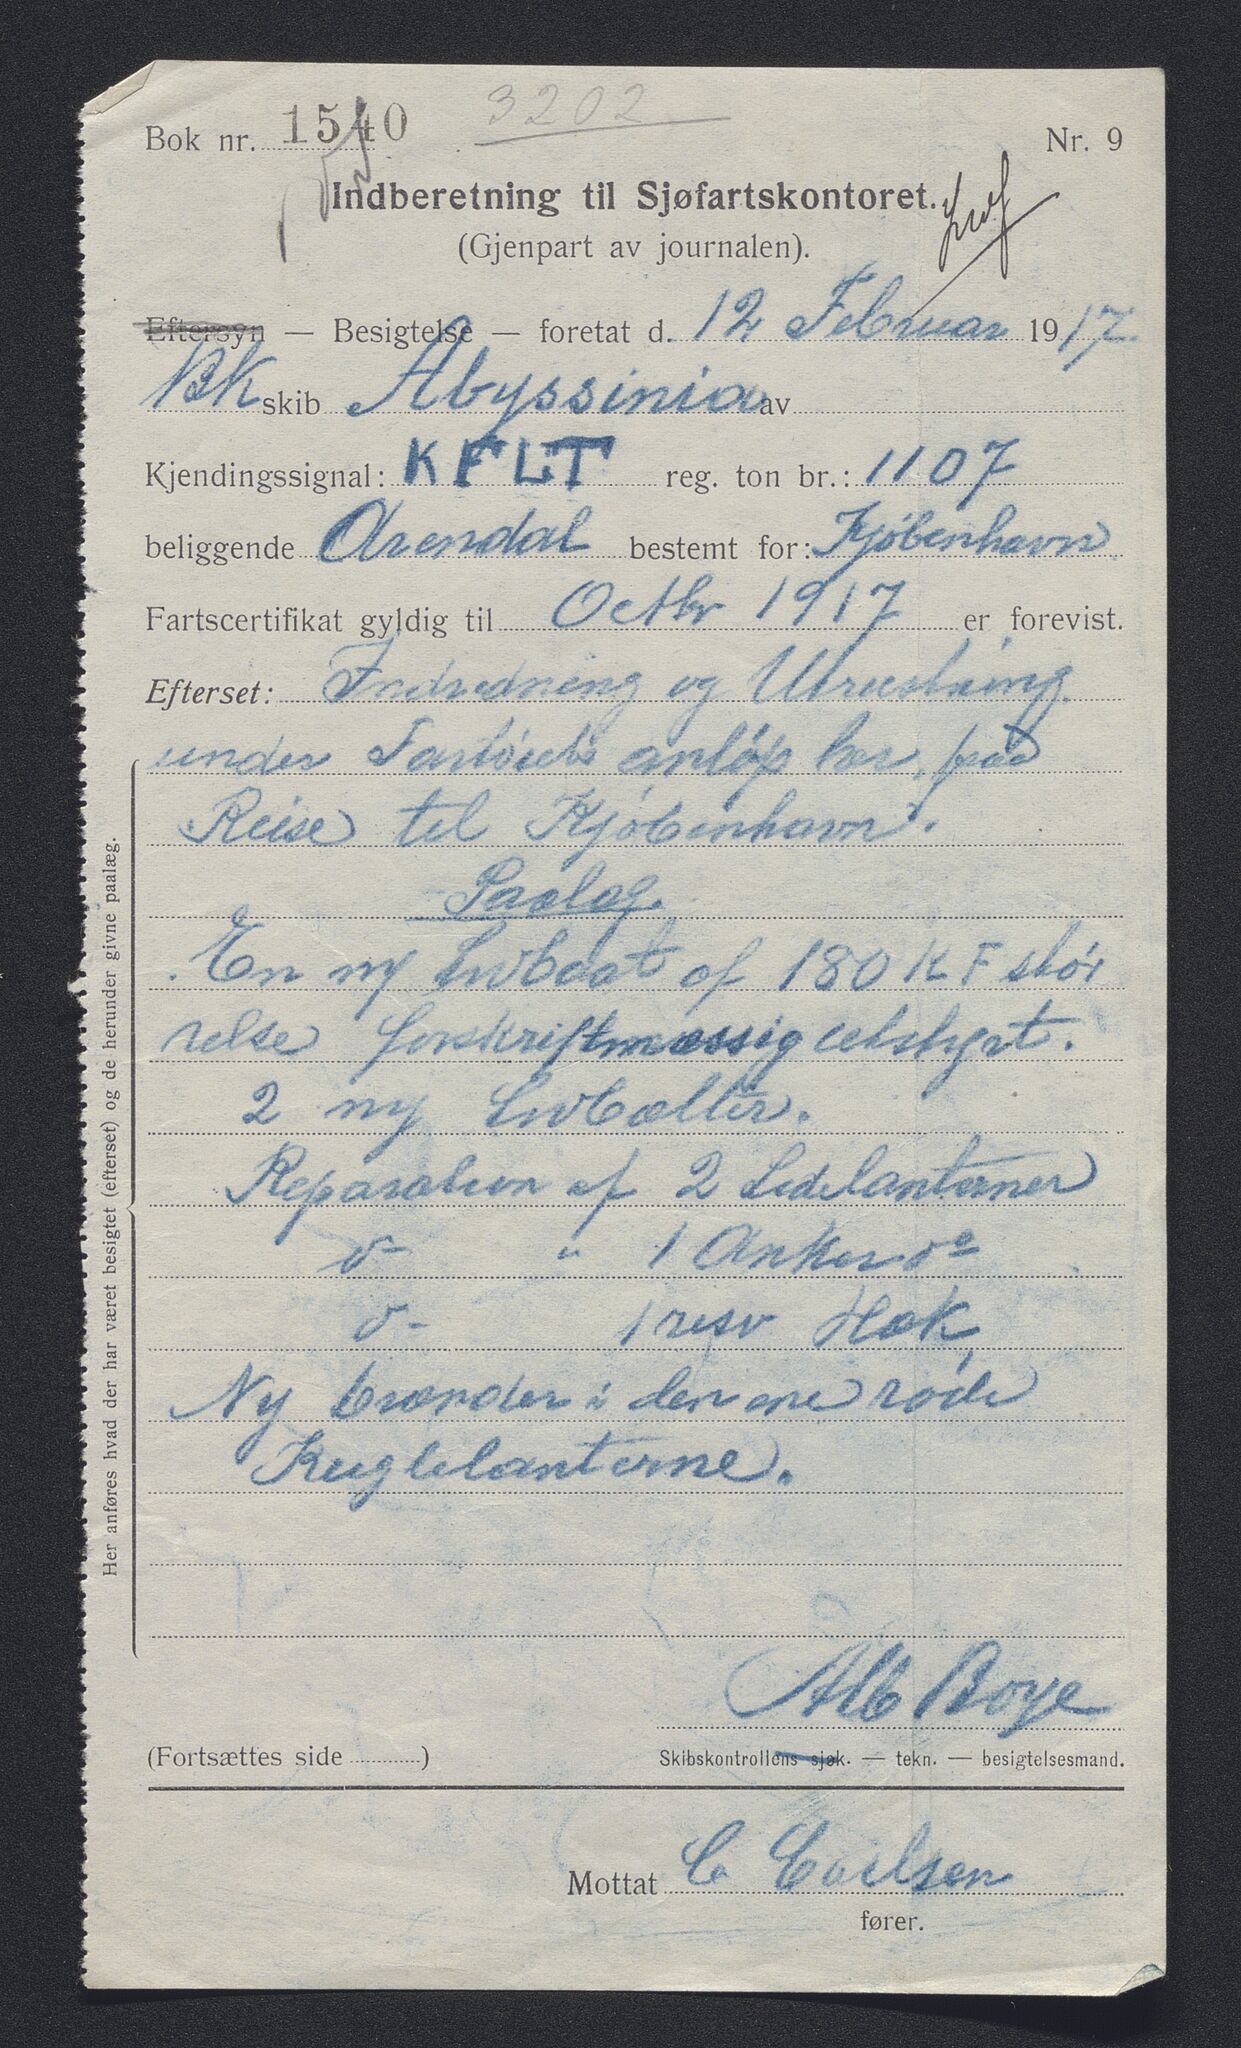 Bok nr. 1540 3202 Nr. 9
Indberetning til Sjøfartskontoret.
(Gjenpart av journalen).
Eftersyn — Besigtelse — foretat d. 12 Februar 1917.
Bk skib Abyssinia av
Kjendingssignal: KFLT reg. ton br.: 1107
beliggende Arendal bestemt for: Kjøbenhavn
Fartscertifikat gyldig til Octbr 1917 er forevist.
Efterset: Indredning og Utrustning
under Fartøiets anløp her, paa
Reise til Kjøbenhavn.
Paalæg.
En ny Livbaat af 180 K F stør
relse forskriftmæssig utstyrt.
2 ny Livbælter.
Reparation af 2 Sidelanterner
do - " 1 Anker do
do - 1 resv Hæk
Ny brænder i den ene røde
Kuglelanterne.
Her anføres hvad der har været besigtet (efterset) og de herunder givne paalæg.
Alb Boye
(Fortsættes side ) Skibskontrollens sjøk. — tekn. — besigtelsesmand.
Mottat C Carlsen
fører.